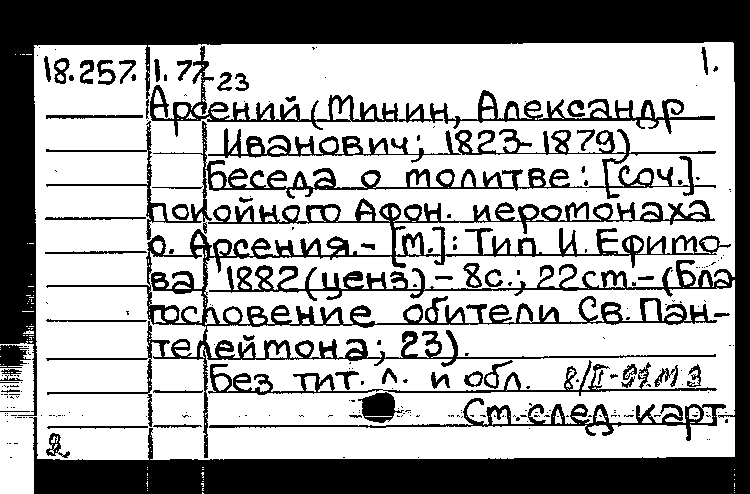 18.257. 1.77-23 1.
Арсений (Минин, Александр
Иванович; 1823-1879)
Беседа о молитве: [соч.].
покойного Афон. иеромонаха
о. Арсения.- [М.]: Тип. И. Ефимо-
ва 1882 (ценз.).- 8с.; 22см.- (Бла
гословение обители Св. Пан-
телеймона; 23).
Без тит. л. и обл. 8/II-99. М З
См. след. карт.
2